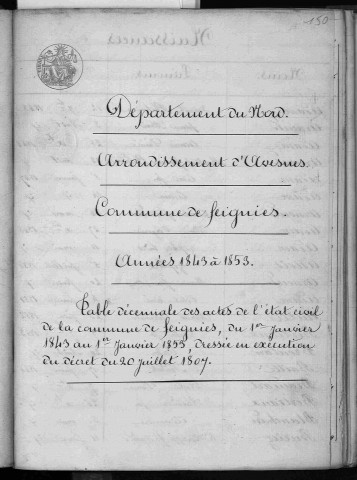 150
Département du Nord.
Arrondissement d'Avesnes
Commune de feignies.
Années 1843 à 1853.
Table décennale des actes de l'état civil
de la commune de feignies, du 1er Janvier
1843 au 1er Janvier 1853, dressée en exécution
du décret du 20 juillet 1807.